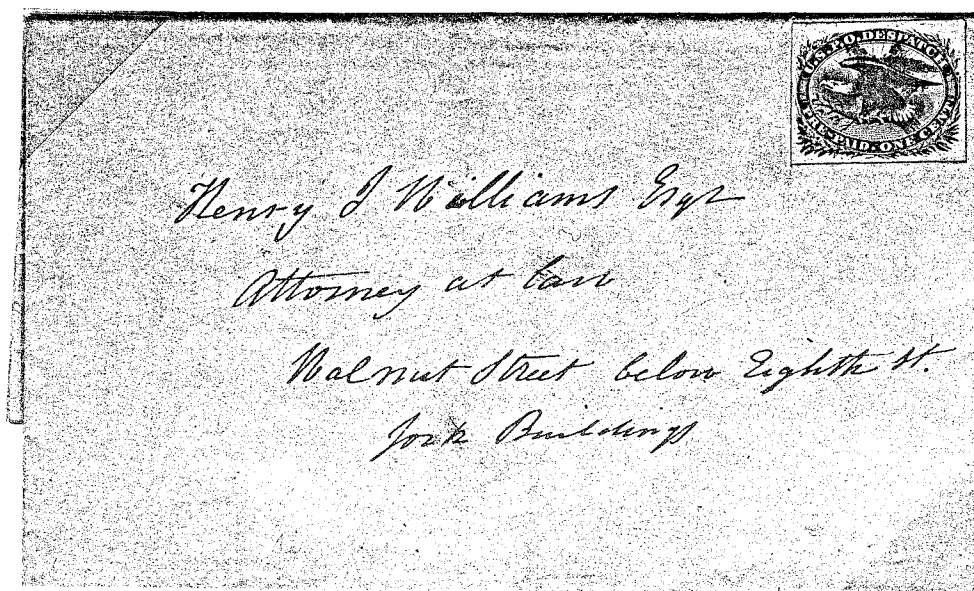 U.S.P.O. DESPATCH
PRE-PAID ONE CENT
Henry J Williams Esqr
Attorney at Law
Walnut Street below Eighth St.
York Buildings